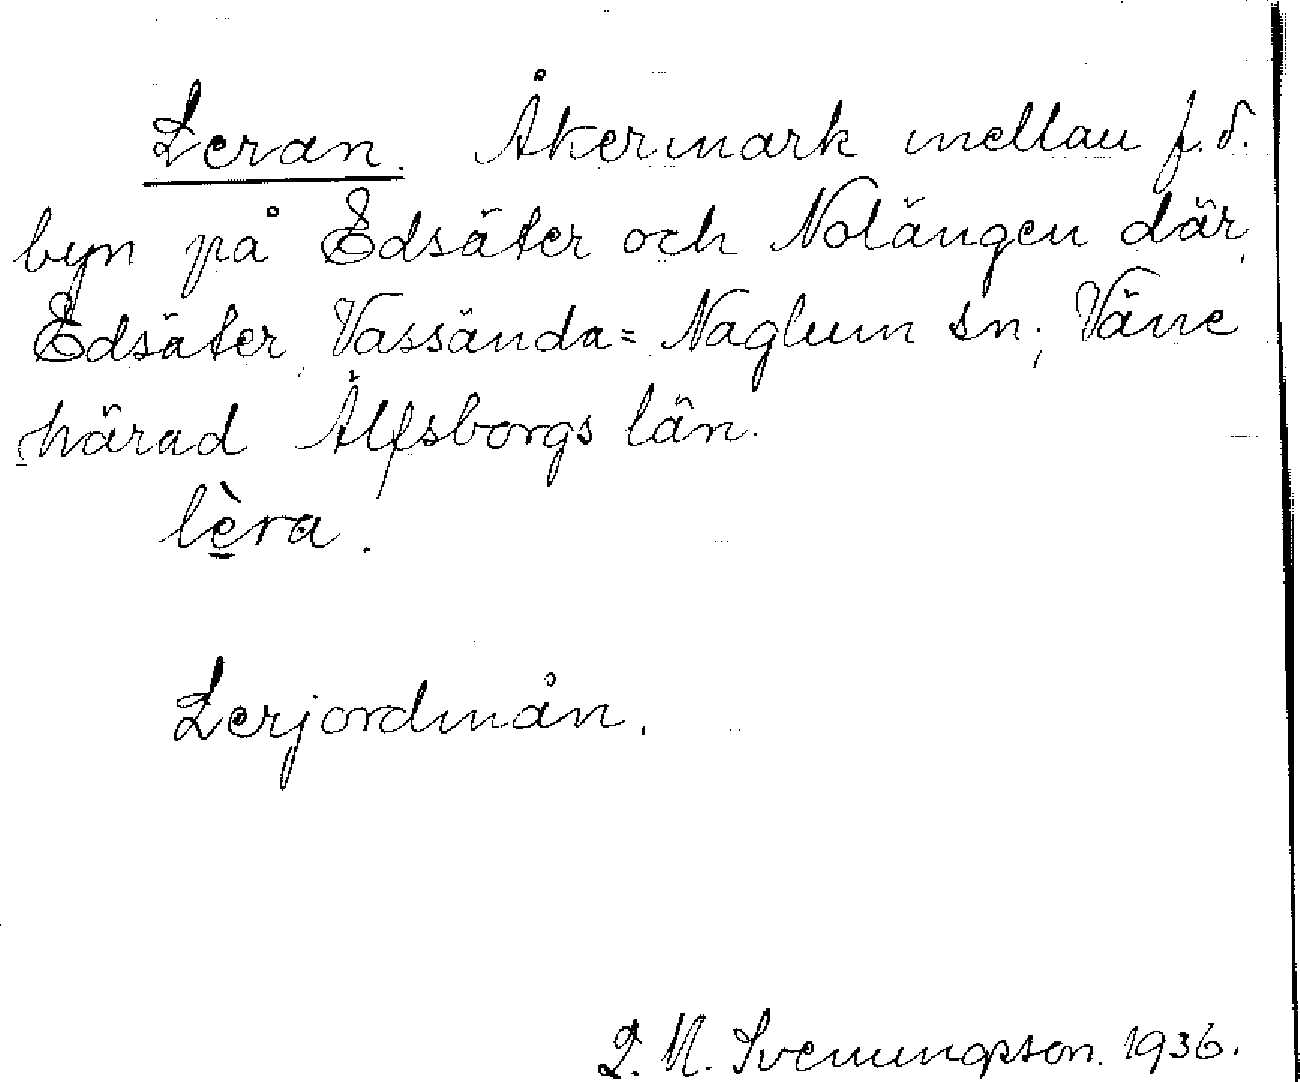 Leran. Åkermark mellan f.d.
byn på Edsäter och Nolängen där,
Edsäter, Vassända=Naglum sn; Väne
härad Älfsborgs län.
lèra.
Lerjordmån.
L. M. Svenungson. 1936.